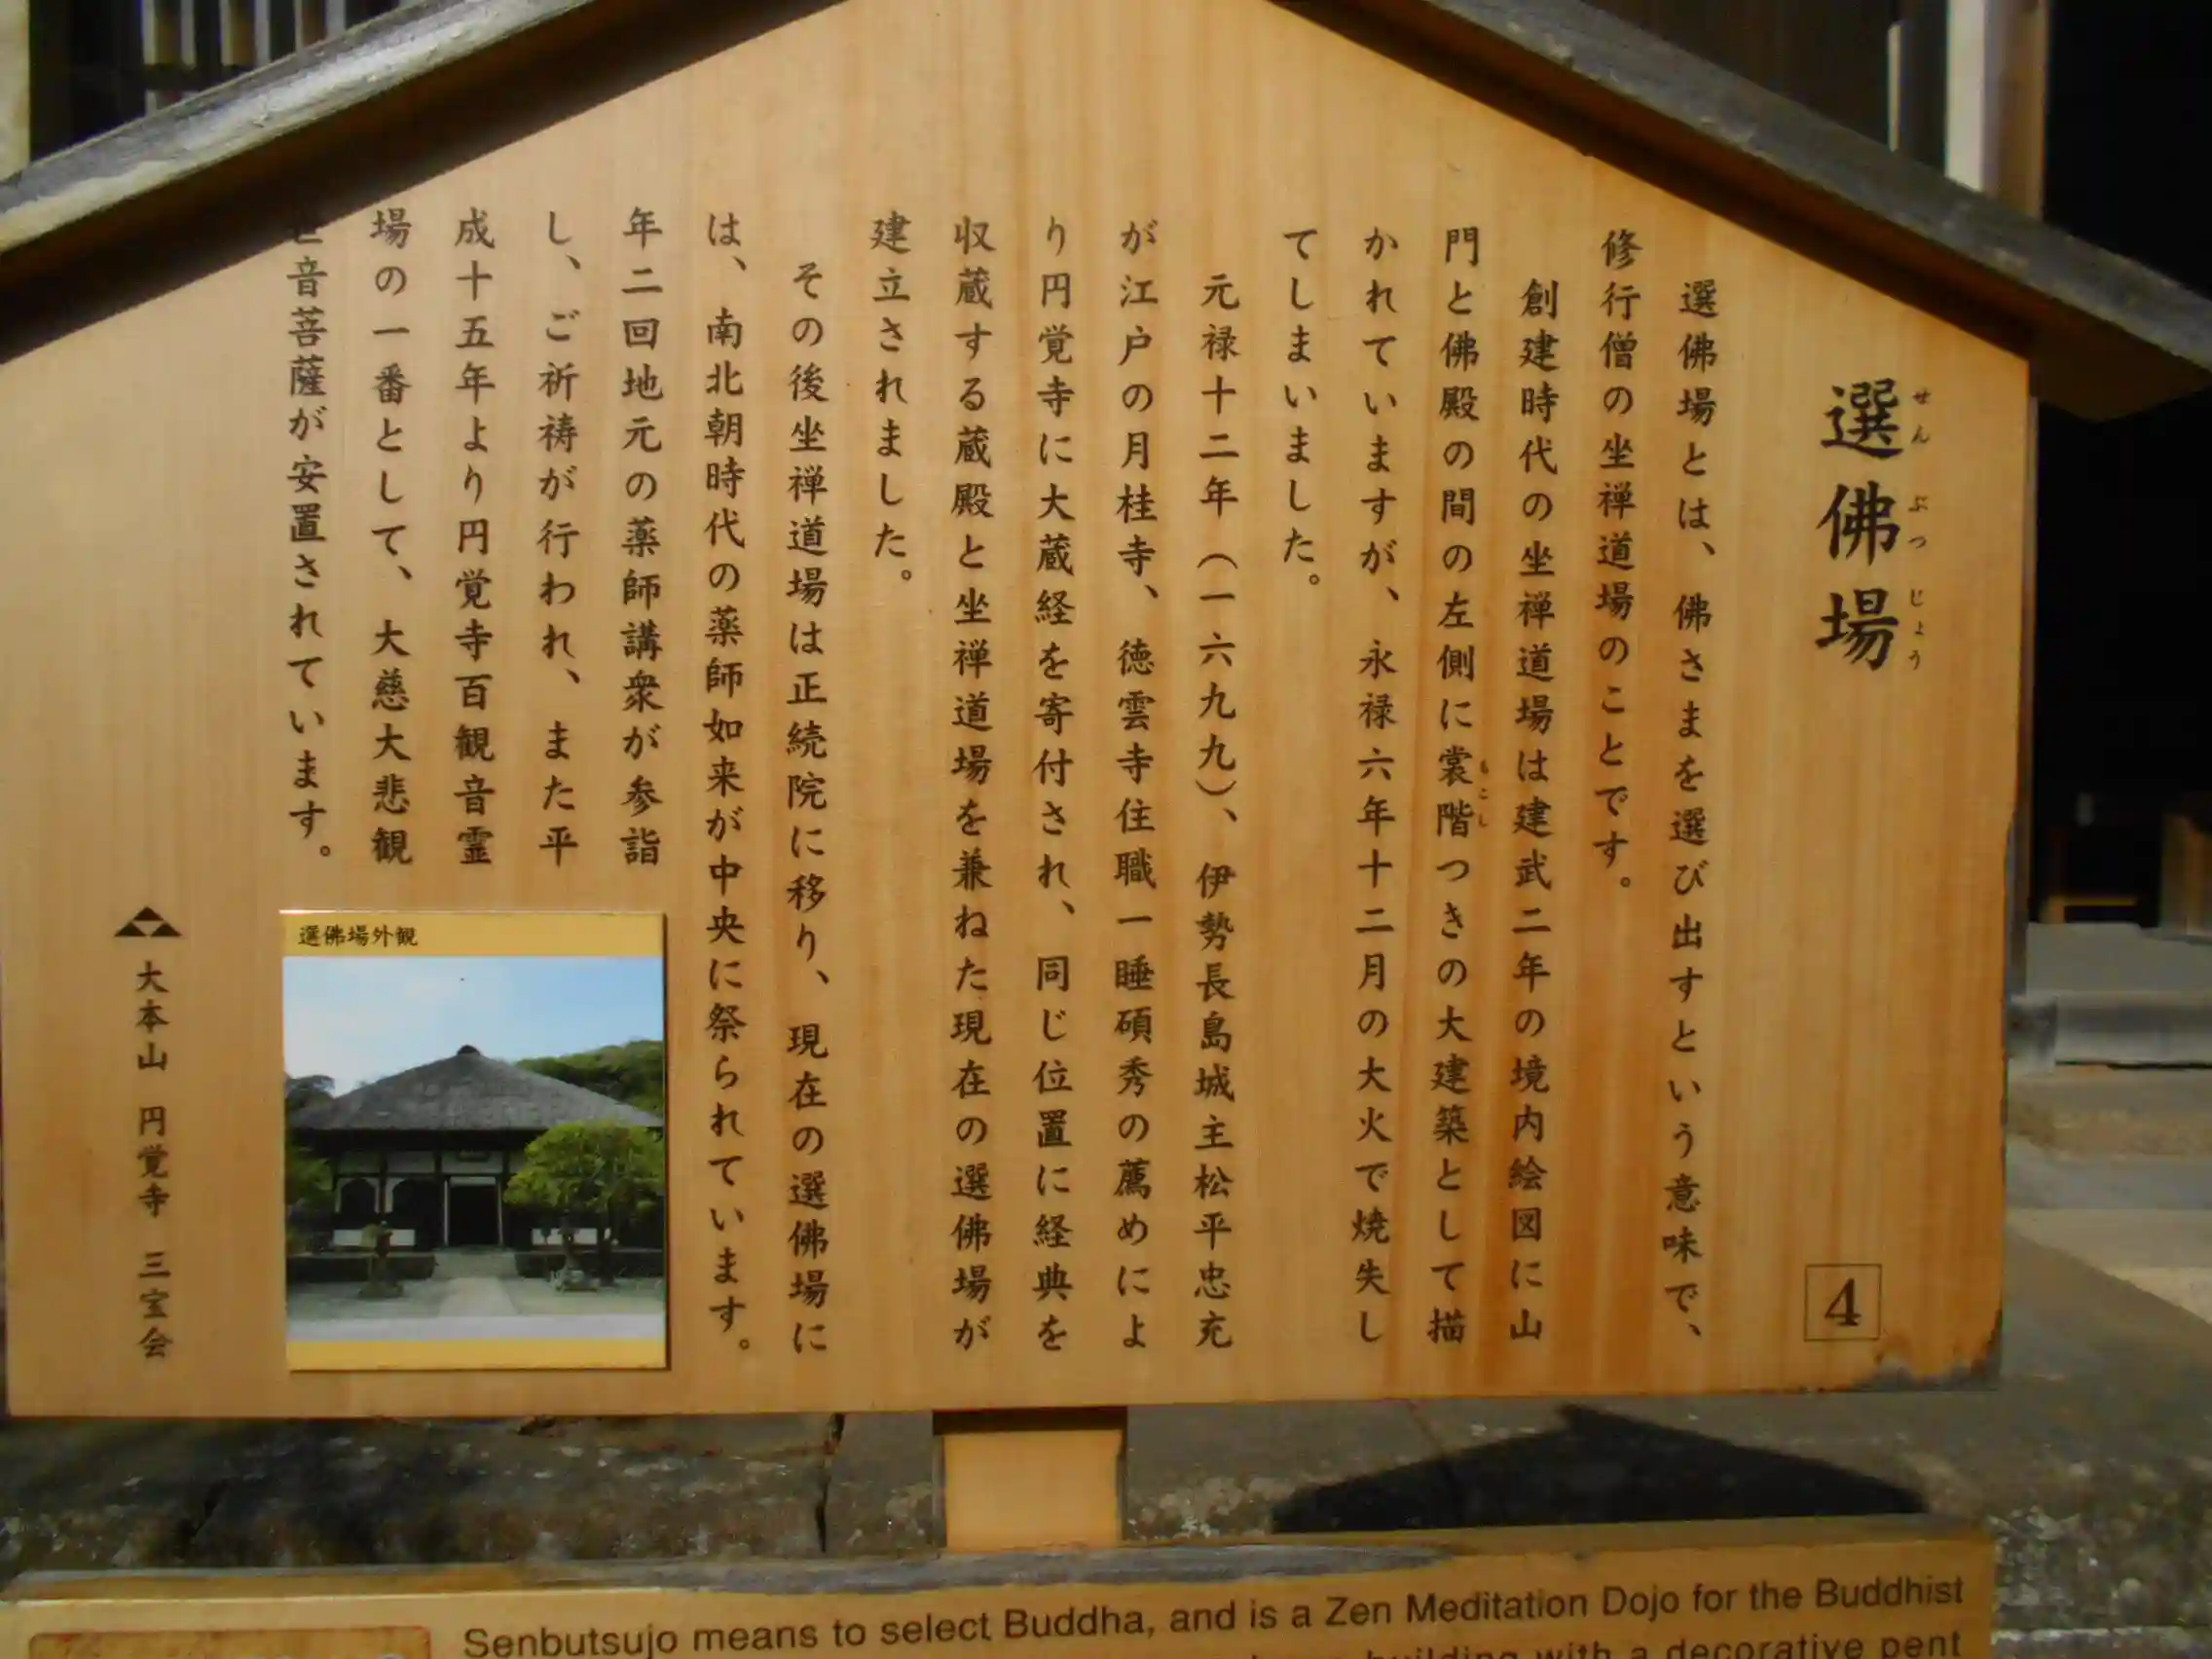 選佛場
せんぶつじょう
4
選佛場とは、佛さまを選び出すという意味で、
修行僧の坐禅道場のことです。
創建時代の坐禅道場は建武二年の境内絵図に山
門と佛殿の間の左側に裳階つきの大建築として描
もこし
かれていますが、永禄六年十二月の大火で焼失し
てしまいました。
元禄十二年（一六九九）、伊勢長島城主松平忠充
が江戸の月桂寺、徳雲寺住職一睡碩秀の薦めによ
り円覚寺に大蔵経を寄付され、同じ位置に経典を
収蔵する蔵殿と坐禅道場を兼ねた現在の選佛場が
建立されました。
その後坐禅道場は正続院に移り、現在の選佛場に
は、南北朝時代の薬師如来が中央に祭られています。
年二回地元の薬師講衆が参詣
し、ご祈祷が行われ、また平
成十五年より円覚寺百観音霊
場の一番として、大慈大悲観
世音菩薩が安置されています。
選佛場外観
大本山 円覚寺 三宝会
Senbutsujo means to select Buddha, and is a Zen Meditation Dojo for the Buddhist
building with a decorative pent